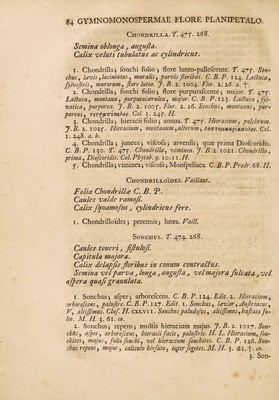 84 GYMNOMONOSPERMAE FLORE PLANIPETALO.
CHONDRILLA. T. 475. 268.
Semina oblonga, angusta.
Calix veluti tubulatus ac cylindricus.
1. Chondrilla; sonchi folio; flore luteo-pallescente. T. 475. Son-
chus, lævis, laciniatus, muralis, parvis floribus. C. B. P. 124. Lactuca,
sylvestris, murorum, flore luteo. J. B. 2. 1004. Flor. 2. 26. a. †
2. Chondrilla; sonchi folio; flore purpurascente; major. T. 475.
Lactuca, montana, purpurocærulea, major. C. B. P. 123. Lactuca, syl-
vatica, purpurea. J. B. 2. 1005. Flor. 2. 26. Sonchus, montanus, pur-
pureus, Col. 1. 245. H.
3. Chondrilla; hieracii folio; annua. T. 475. Hieracium, pulchrum.
J. B. 2. 1025. Hieracium, montanum, alterum, Col.
1. 248. a. b.
4. Chondrilla; juncea; viscosa; arvensis; quæ prima Dioscoridis.
C. B. P. 130. T. 475. Chondrilla, viminea. J. B. 2. 1021. Chondrilla,
prima, Dioscoridis. Col. Phytob. 9. 10. 11. H.
5. Chondrilla; viminea; viscosa; Monspeliaca. C. B. P. Prodr. 68. H.
CHONDRILLOÏDES. Vaillant.
Folia Chondrillæ C. B. P.
Caules valde ramosi.
Calix squamosus, cylindricus fere.
1. Chondrilloïdes; perennis; lutea. Vaill.
SONCHUS. T. 474. 268.
Caules teneri, fistulosi.
Capitula majora.
Calix delapsis floribus in conum contractus.
Semina vel parva, longa, angusta, vel majora sulcata, vel
aspera quasi granulata.
1. Sonchus; asper; arborescens. C. B. P. 124. Edit. 2. Hieracium,
arborescens, palustre. C. B. P. 127. Edit. 1. Sonchus, lævior, Austriacus,
V, altissimus. Clus. H. CXLVII. Sonchus paludosus, altissimus, hastato fo-
lio. M. H. 3. 61. ic.
2. Sonchus; repens; multis hieracium majus. J. B. 2. 1017. Son-
chus, asper, arborescens, hieracii facie, palustris. H. L. Hieracium, son-
chites, majus, folio sonchi, vel hieracium sonchites. C. B. P. 126. Son-
chus repens, major, caliculo hirsuto, inter segetes. M. H. 3. 61. †. ic.
3. Son-